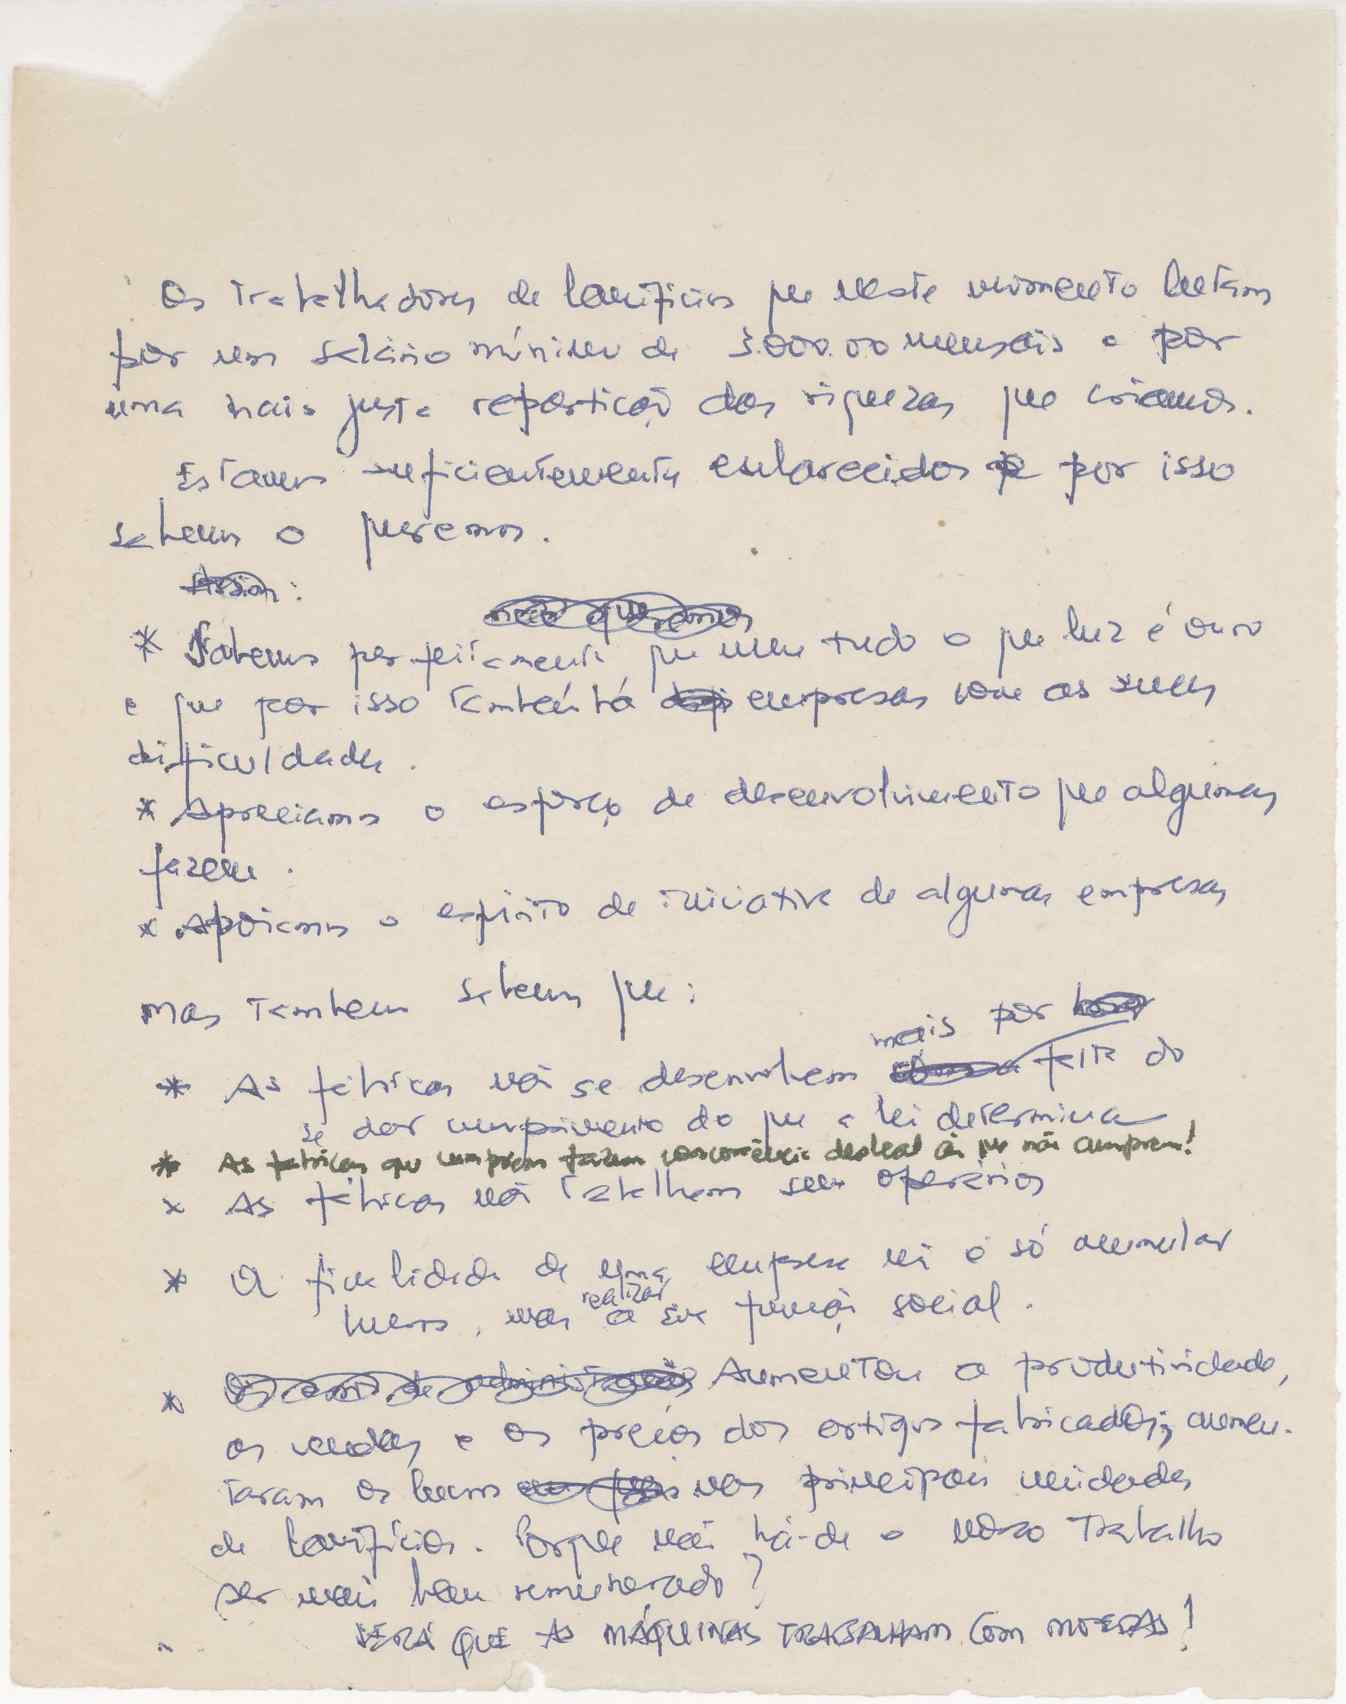 Os trabalhadores de lanifícios que neste momento lutam
por um salário mínimo de 3.000.00 mensais e por
uma mais justa repartição das riquezas que criamos.
Estamos suficientemente esclarecidos e por isso
sabemos o queremos.
Assim:
não queremos
* Sabemos perfeitamente que nem tudo o que luz é ouro
e que por isso também há empresas com as suas
dificuldades.
* Apreciamos o esforço de desenvolvimento que algumas
fazem.
* Apoiamos o espírito de iniciativa de algumas empresas
mas também sabemos que:
mais por
* As fábricas não se desenvolvem falta do
se dar cumprimento do que a lei determina
* As fábricas que cumprem fazem concorrência desleal às que não cumprem!
x As fábricas não trabalham sem operários
* A finalidade de uma empresa não é só acumular
realizar
lucros, mas a sua função social.
* Os cons. de administração Aumentou a produtividade,
as vendas e os preços dos artigos fabricados; aumen-
taram os lucros nas principais unidades
de lanifícios. Porque não há-de o nosso trabalho
ser mais bem remunerado?
SERÁ QUE AS MÁQUINAS TRABALHAM COM MOEDAS!